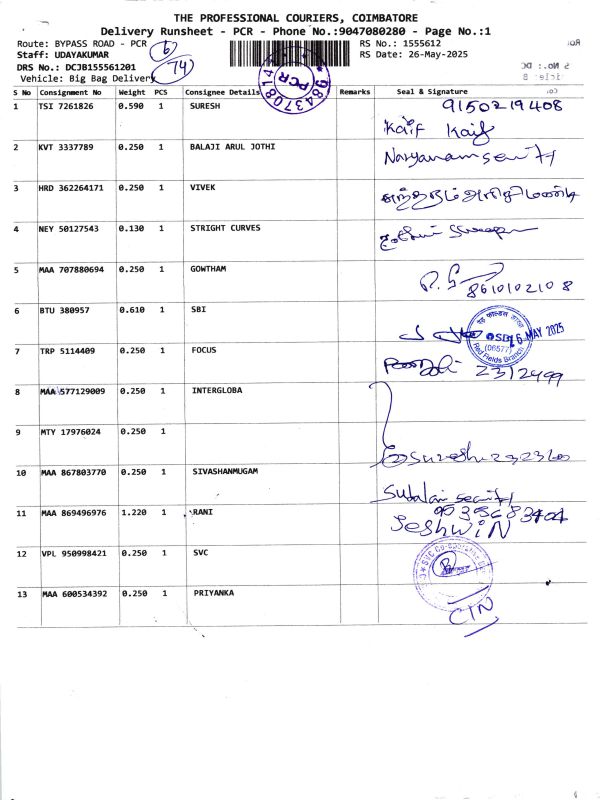 THE PROFESSIONAL COURIERS, COIMBATORE
Delivery Runsheet - PCR - Phone No.:9047080280 - Page No.:1
Route: BYPASS ROAD - PCR
RS No.: 1555612
Staff: UDAYAKUMAR
RS Date: 26-May-2025
DRS No.: DCJB155561201
74
Vehicle: Big Bag Delivery
PCR
S No Consignment No Weight PCS Consignee Details Remarks Seal & Signature
1 TSI 7261826 0.590 1 SURESH 9150219408
Kaif Kaif
2 KVT 3337789 0.250 1 BALAJI ARUL JOTHI
3 HRD 362264171 0.250 1 VIVEK
4 NEY 50127543 0.130 1 STRIGHT CURVES
5 MAA 707880694 0.250 1 GOWTHAM
8610102108
6 BTU 380957 0.610 1 SBI
SBI
MAY 2025
(06577)
Red Fields Branch
7 TRP 5114409 0.250 1 FOCUS
2312499
8 MAA 577129009 0.250 1 INTERGLOBA
9 MTY 17976024 0.250 1
10 MAA 867803770 0.250 1 SIVASHANMUGAM
11 MAA 869496976 1.220 1 RANI
JeshwiN
12 VPL 950998421 0.250 1 SVC
13 MAA 600534392 0.250 1 PRIYANKA